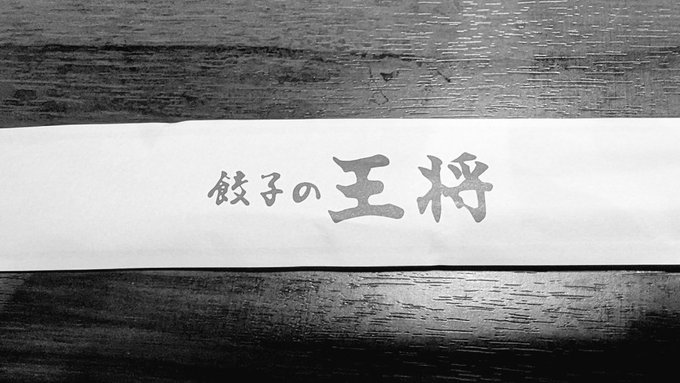 餃子の王将